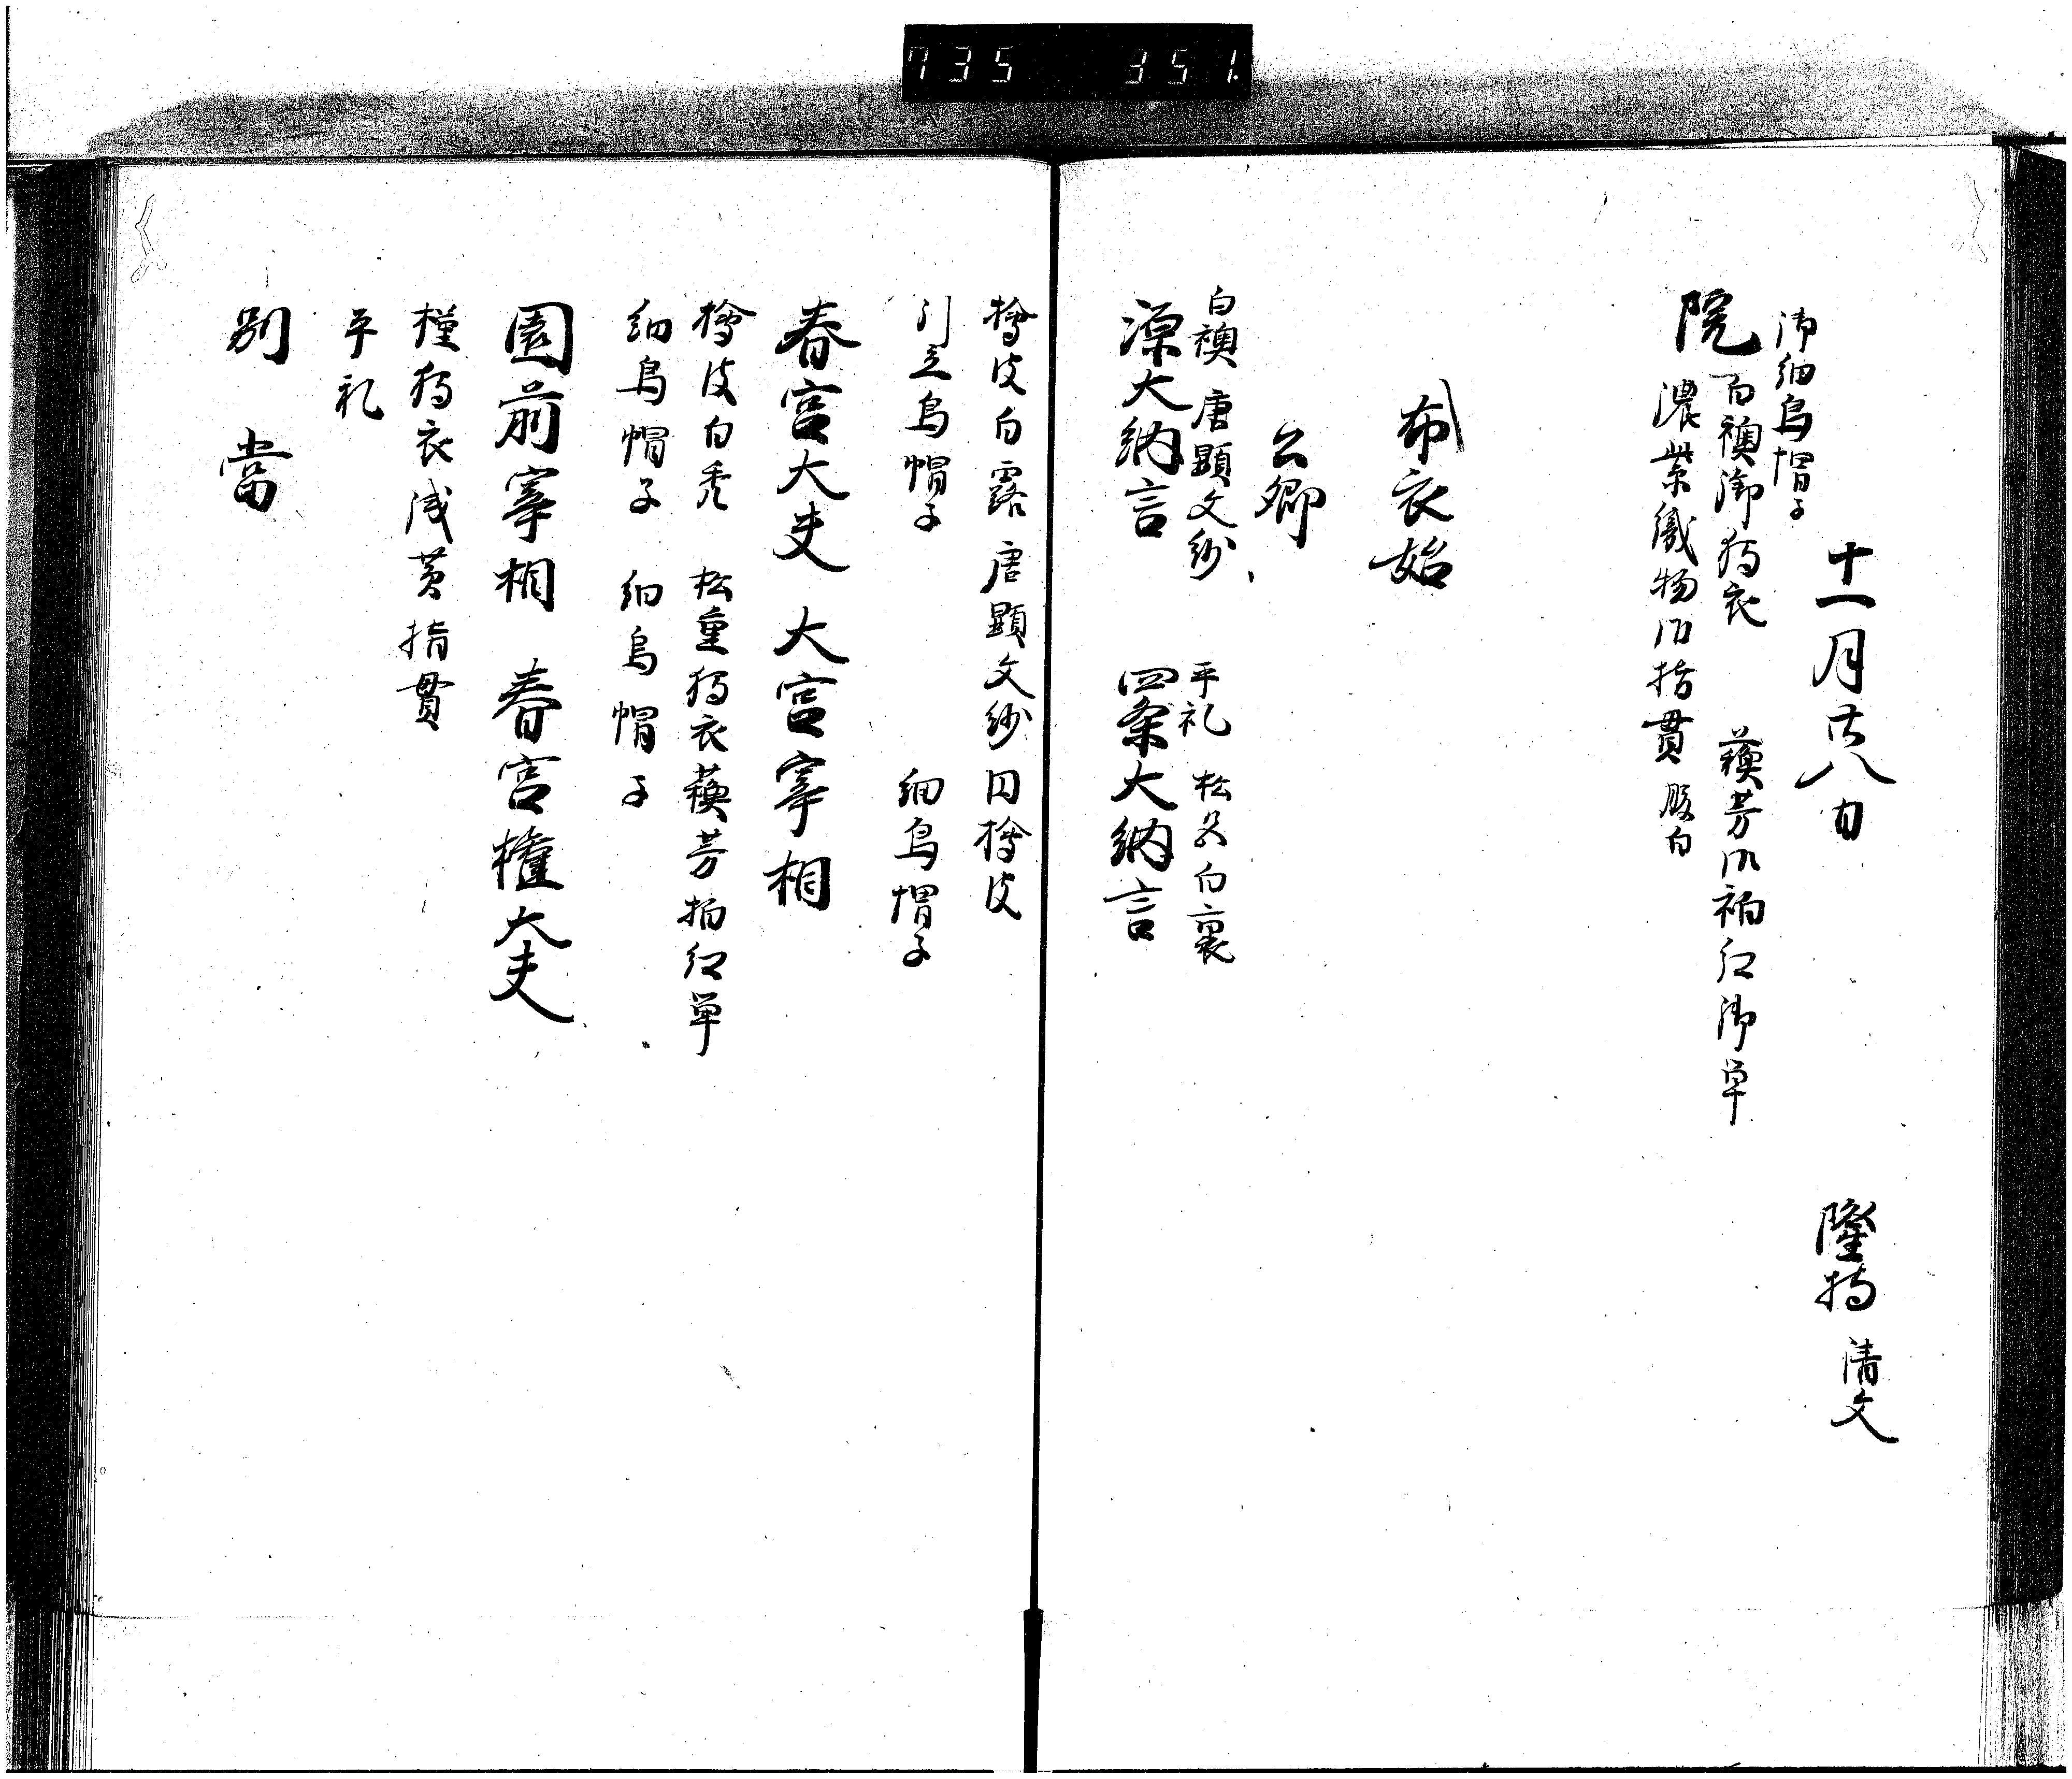 735 351.
十一月廿八日
隆持 請文
御細烏帽子
院 白襖御狩衣 蘓芳御衵紅御単
濃紫織物御指貫 腹白
布衣始
公卿
白襖 唐顕文紗 平礼 松名白裏
源大納言 四条大納言
檜皮白露 唐顕文紗 同檜皮
引立烏帽子 細烏帽子
春宮大夫 大宮宰相
檜皮白 松重狩衣蘓芳衵紅単
細烏帽子 細烏帽子
園前宰相 春宮権大夫
狩衣浅黄指貫
平礼
別 當